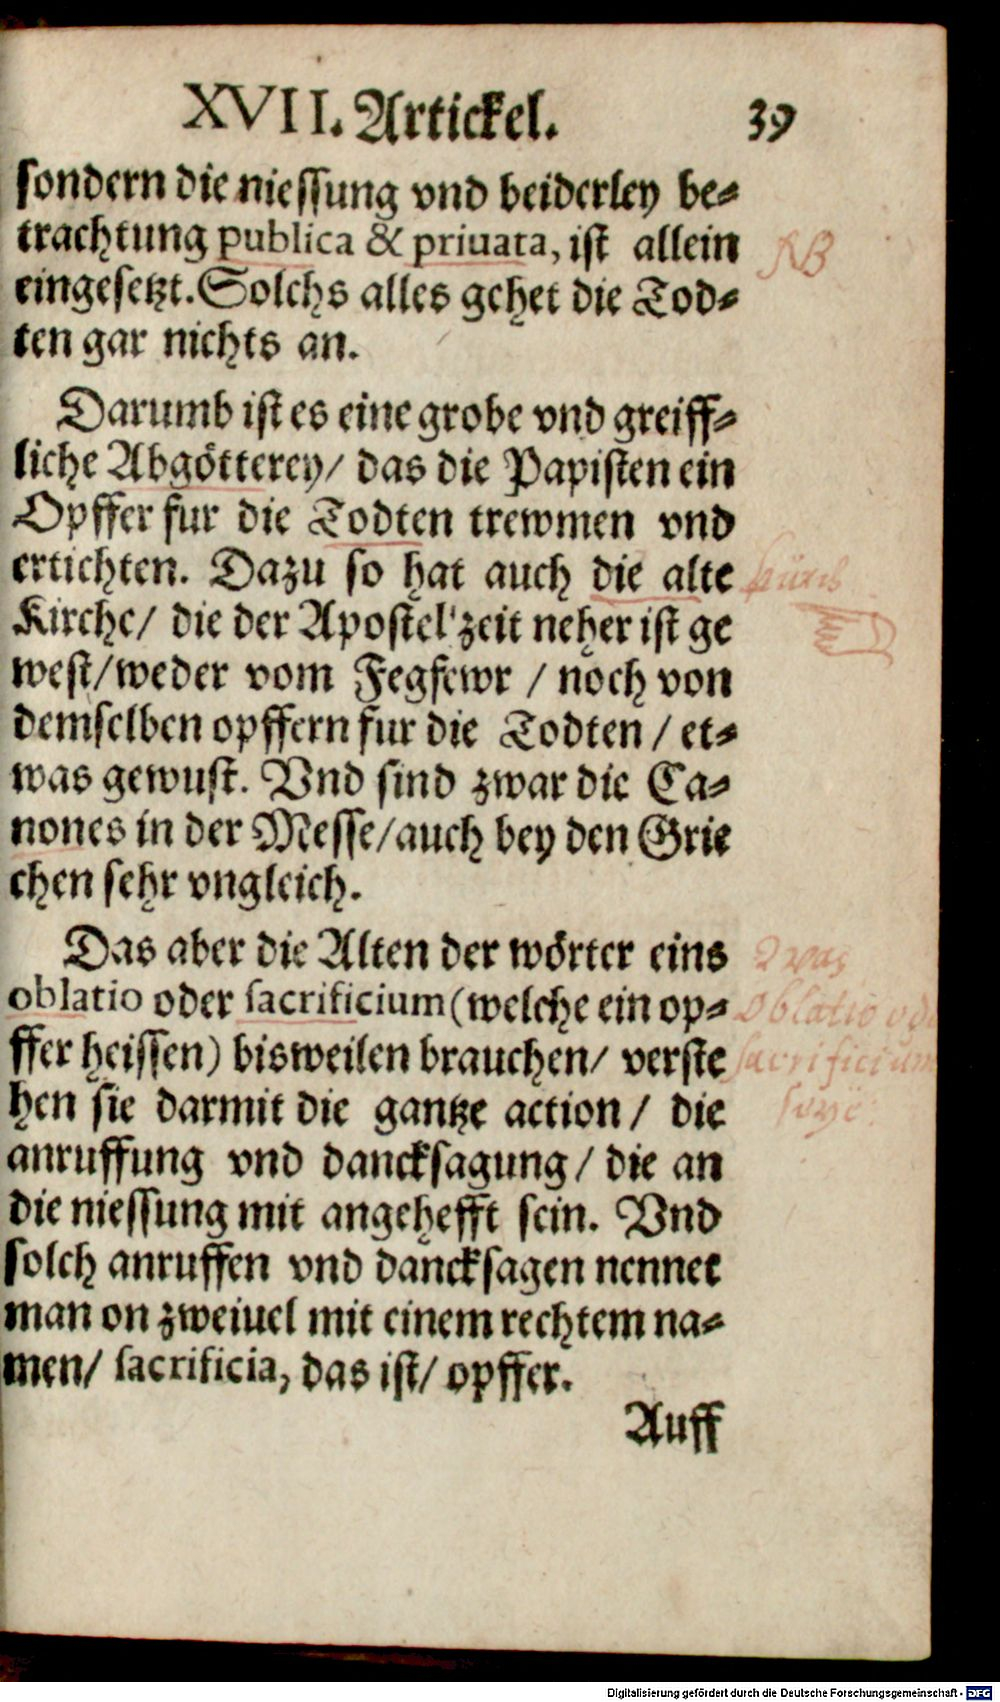 XVII. Artickel. 39
sondern die niessung vnd beiderley be-
trachtung publica & priuata, ist allein
NB
eingesetzt. Solchs alles gehet die Tod-
ten gar nichts an.
Darumb ist es eine grobe vnd greiff-
liche Abgötterey/ das die Papisten ein
Opffer fur die Todten trewmen vnd
ertichten. Dazu so hat auch die alte
Kirche/ die der Apostel zeit neher ist ge
west/ weder vom Fegfewr / noch von
demselben opffern fur die Todten / et-
was gewust. Vnd sind zwar die Ca-
nones in der Messe/ auch bey den Grie
chen sehr vngleich.
Das aber die Alten der wörter eins
oblatio oder sacrificium (welche ein op-
ffer heissen) bisweilen brauchen/ verste
hen sie darmit die gantze action / die
anruffung vnd dancksagung / die an
die niessung mit angehefft sein. Vnd
solch anruffen vnd dancksagen nennet
man on zweiuel mit einem rechtem na-
men/ sacrificia, das ist/ opffer.
Auff
Was
Oblatio od
sacrificium
seye
Digitalisierung gefördert durch die Deutsche Forschungsgemeinschaft - DFG